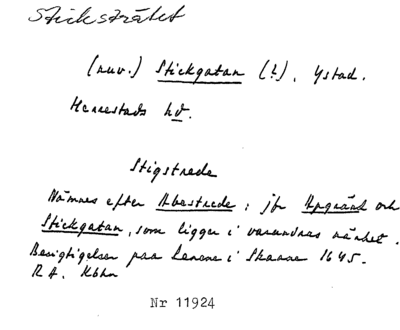 Sticksträtet
(nuv.) Stickgatan (?), Ystad.
Herrestads hd.
Stigstrede
Nämnes efter Abestrede; jfr Apgränd och
Stickgatan, som ligger i varandras närhet.
Besigtigelser paa Lenene i Skaane 1645.
RA. Kbhn
Nr 11924